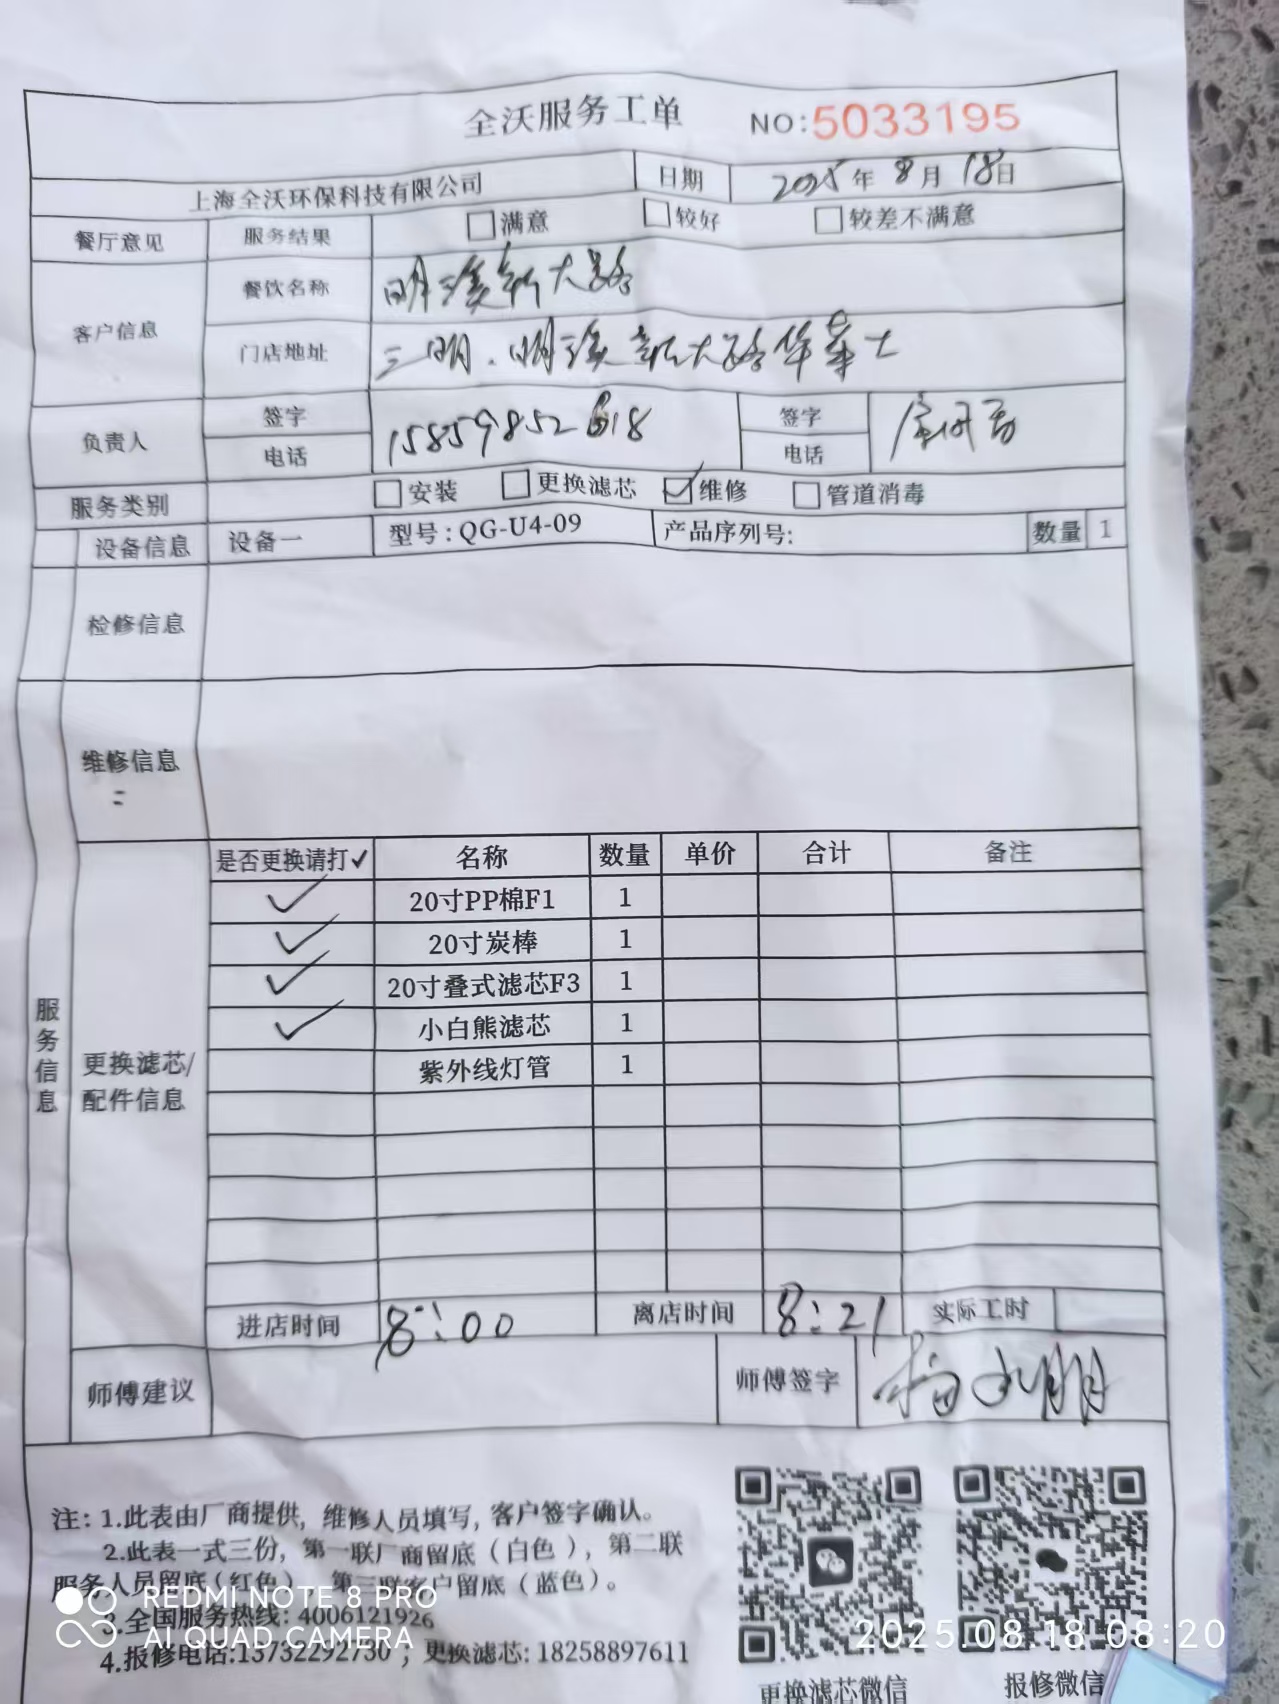 全沃服务工单 NO:5033195
上海全沃环保科技有限公司 日期 2025年8月18日
餐厅意见 服务结果 满意 较好 较差不满意
客户信息 餐饮名称 明溪新大路
门店地址 三明.明溪新大路华莱士
负责人 签字 电话 15859852618 签字 电话
服务类别 安装 更换滤芯 维修 管道消毒
设备信息 设备一 型号:QG-U4-09 产品序列号: 数量 1
检修信息
维修信息
:
服务信息
更换滤芯/
配件信息
是否更换请打✓ 名称 数量 单价 合计 备注
✓ 20寸PP棉F1 1
✓ 20寸炭棒 1
✓ 20寸叠式滤芯F3 1
✓ 小白熊滤芯 1
紫外线灯管 1
进店时间 8:00 离店时间 8:21 实际工时
师傅建议 师傅签字
注:1.此表由厂商提供,维修人员填写,客户签字确认。
2.此表一式三份,第一联厂商留底(白色),第二联
服务人员留底(红色),第三联客户留底(蓝色)。
3.全国服务热线:4006121926
4.报修电话:13732292730;更换滤芯:18258897611
更换滤芯微信 报修微信
REDMI NOTE 8 PRO
AI QUAD CAMERA
2025.08.18 08:20